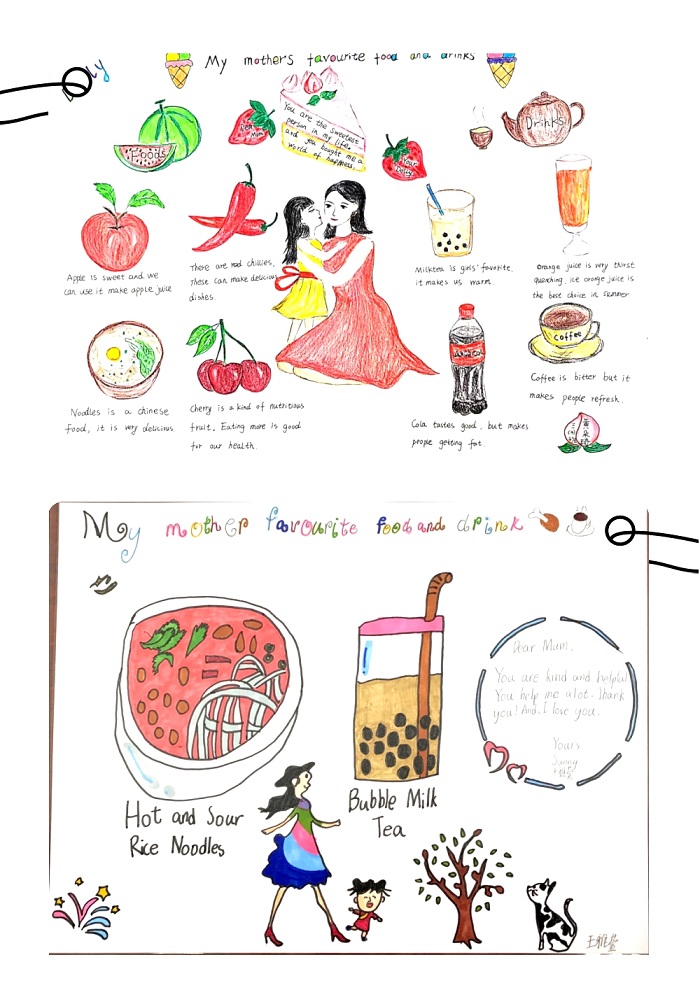 My mothers favourite food and drinks
Foods
Dear
Mum
You are the sweetest
person in my life,
and you bought me a
world of happiness.
Your
Betty
Drinks
Apple is sweet and we
can use it make apple juice
There are red chillies,
These can make delicious
dishes.
Milktea is girls' favorite.
it makes us warm.
Orange juice is very thirst
quenching, ice orange juice is
the best choice in summer
Noodles is a chinese
food, it is very delicious.
Cherry is a kind of nutritious
fruit. Eating more is good
for our health.
Cola tastes good, but makes
people getting fat.
coffee
Coffee is bitter but it
makes people refresh.
My mother favourite food and drink
Dear Mum,
You are kind and helpful
You help me a lot. Thank
you! And I love you.
Yours
Sunny
Hot and Sour
Rice Noodles
Bubble Milk
Tea